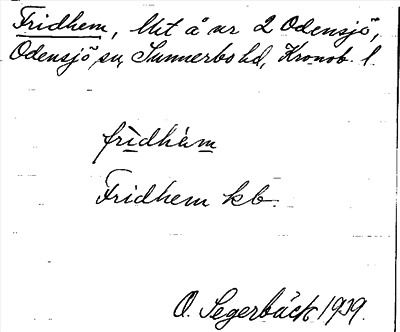 Fridhem, lht å nr 2 Odensjö,
Odensjö sn, Sunnerbo hd, Kronob. l.
fridhäm
Fridhem kb.
O. Segerbäck 1939.